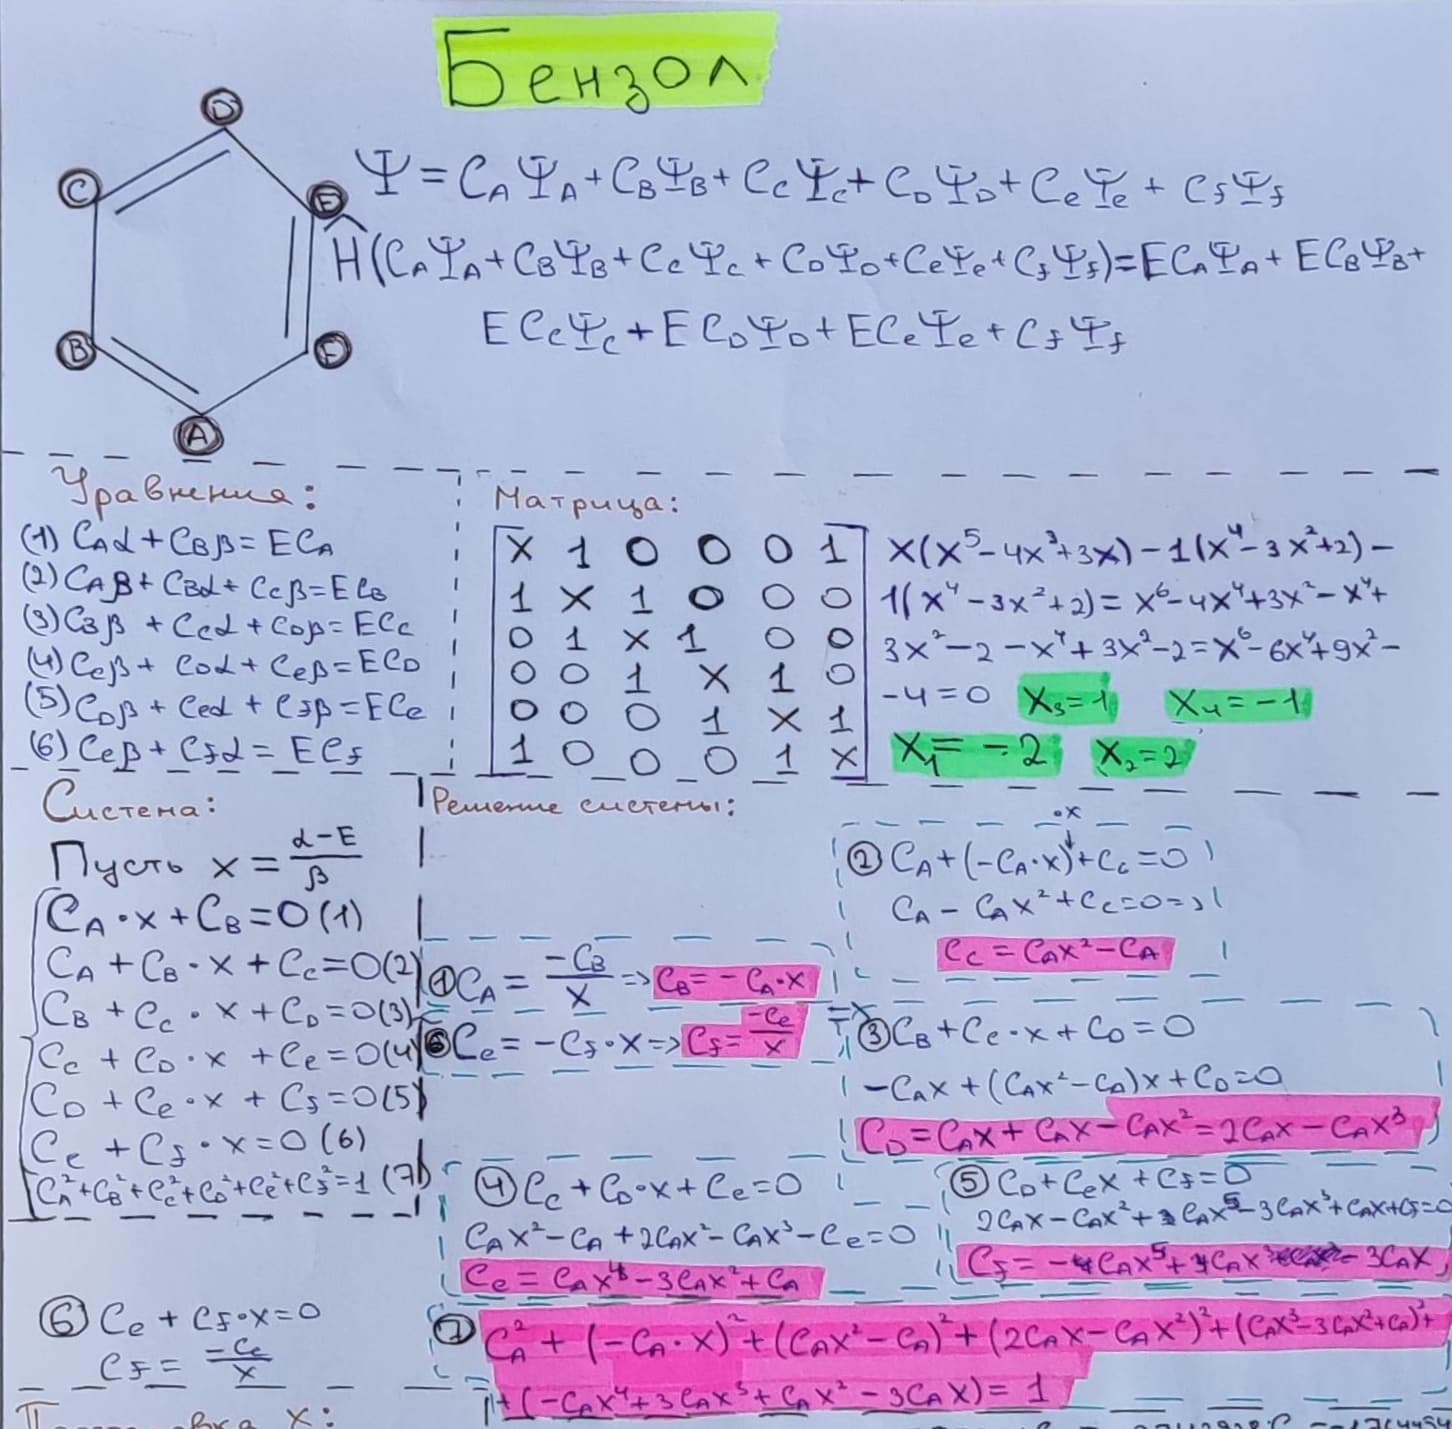 Бензол
D
C
E
B
F
A
Ψ = C_A Ψ_A + C_B Ψ_B + C_c Ψ_c + C_D Ψ_D + C_e Ψ_e + C_f Ψ_f
Ĥ(C_A Ψ_A + C_B Ψ_B + C_c Ψ_c + C_D Ψ_D + C_e Ψ_e + C_f Ψ_f) = EC_A Ψ_A + EC_B Ψ_B +
EC_c Ψ_c + EC_D Ψ_D + EC_e Ψ_e + C_f Ψ_f
Уравнения:
(1) C_Aα + C_Bβ = EC_A
(2) C_Aβ + C_Bα + C_cβ = EC_B
(3) C_Bβ + C_cα + C_Dβ = EC_c
(4) C_cβ + C_Dα + C_eβ = EC_D
(5) C_Dβ + C_eα + C_fβ = EC_e
(6) C_eβ + C_fα = EC_f
Матрица:
X 1 0 0 0 1
1 X 1 0 0 0
0 1 X 1 0 0
0 0 1 X 1 0
0 0 0 1 X 1
1 0 0 0 1 X
X(X⁵ - 4X³ + 3X) - 1(X⁴ - 3X² + 2) -
1(X⁴ - 3X² + 2) = X⁶ - 4X⁴ + 3X² - X⁴ +
3X² - 2 - X⁴ + 3X² - 2 = X⁶ - 6X⁴ + 9X² -
-4 = 0 X₃ = 1 X₄ = -1
X₁ = -2 X₂ = 2
Система:
Пусть x = (α-E)/β
C_A·x + C_B = 0 (1)
C_A + C_B·x + C_c = 0 (2)
C_B + C_c·x + C_D = 0 (3)
C_c + C_D·x + C_e = 0 (4)
C_D + C_e·x + C_f = 0 (5)
C_e + C_f·x = 0 (6)
C_A² + C_B² + C_c² + C_D² + C_e² + C_f² = 1 (7)
⑥ C_e + C_f·x = 0
C_f = -C_e/x
Решение системы:
① C_A = -C_B/x => C_B = -C_A·x
⑥ C_e = -C_f·x => C_f = -C_e/x
·x
② C_A + (-C_A·x) + C_c = 0
C_A - C_Ax² + C_c = 0 =>
C_c = C_Ax² - C_A
=>
③ C_B + C_c·x + C_D = 0
-C_Ax + (C_Ax² - C_A)x + C_D = 0
C_D = C_Ax + C_Ax - C_Ax² = 2C_Ax - C_Ax³
④ C_c + C_D·x + C_e = 0
C_Ax² - C_A + 2C_Ax² - C_Ax³ - C_e = 0
C_e = C_Ax⁴ - 3C_Ax² + C_A
⑤ C_D + C_ex + C_f = 0
2C_Ax - C_Ax² + C_Ax⁵ - 3C_Ax³ + C_Ax + C_f = 0
C_f = - C_Ax⁵ + 4C_Ax³ - 3C_Ax
⑦ C_A² + (-C_A·x)² + (C_Ax² - C_A)² + (2C_Ax - C_Ax²)² + (C_Ax³ - 3C_Ax² + C_A)² +
+ (-C_Ax⁴ + 3C_Ax³ + C_Ax² - 3C_Ax) = 1
x: